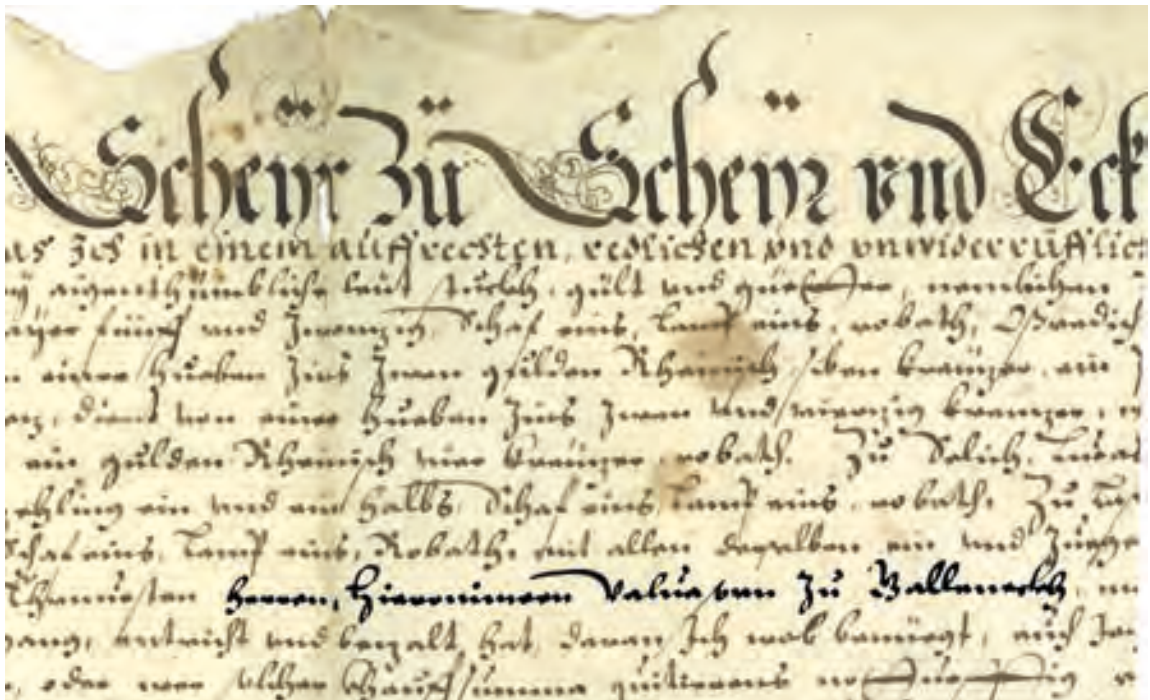 Scheÿr Zü Scheÿr vnd Eck
as Ich in einem auffrechten, redlichen vnd vnwiderrüfflich
aigenthümbliche leut stuckh, gült vnd güetter, nemlichen
fünff vnd Zwenzig, Schaf ains, Lamp ains, robath,
ainer Hueben Zins Zwen gulden Rheinisch siben kreuzer, ain
dient von ainer Hueben Zins Zwen vnd vierzig kreuzer,
ain gulden Rheinisch vier kreüzer robath. Zu Selich,
ehling ein vnd ein halbs, Schaf ains Lamp ains, robath. Zu
Schaf ains, Lamp ains, Robath, mit allen derselben ein vnd Zuege
herren, Hieronimoen Valuasorn Zu Gallenekh,
entricht vnd bezalt hat, daran Ich wol benüegt, auch
oder wer solcher Khauffsumma quittierens